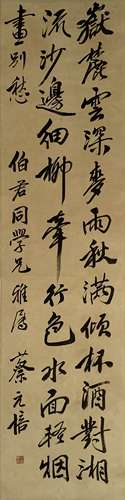 嶽麓雲深麥雨秋滿傾杯酒對湘
流沙邊細柳牽行色水面輕烟
畫別愁
伯君同學兄雅屬
蔡元培